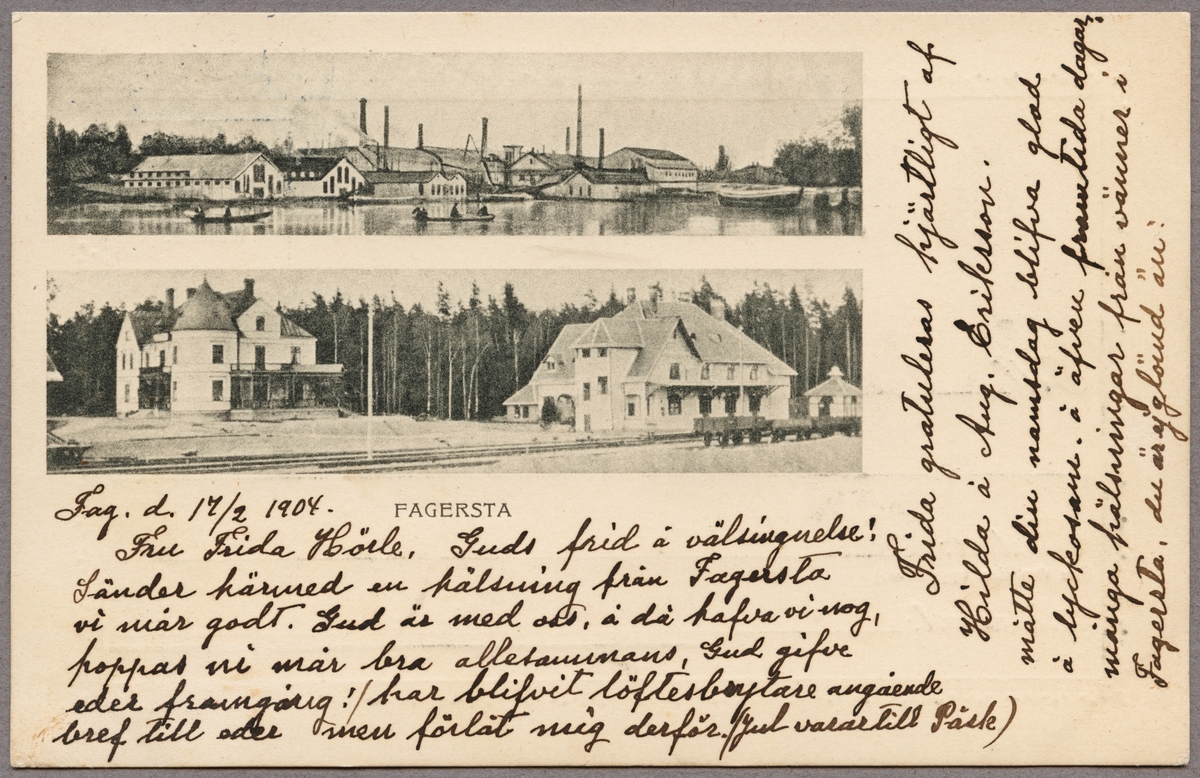 Fag. d. 17/2 1904.
FAGERSTA
Fru Frida Hörle, Guds frid å välsingnelse!
Sänder härmed en hälsning från Fagersta
vi mår godt. Gud är med oss, å då hafva vi nog,
hoppas ni mår bra allesammans, Gud gifve
eder framgång! / har blifvit löftesbrytare angående
bref till eder men förlåt mig derför. (Jul varar till Påsk)
Frida gratuleras hjärtligt af
Hilda å Aug. Eriksson.
måtte din namsdag blifva glad
å lyckosam. å äfven framtida dagar;
många hälsningar från vänner i
Fagersta, du är ej glömd än!